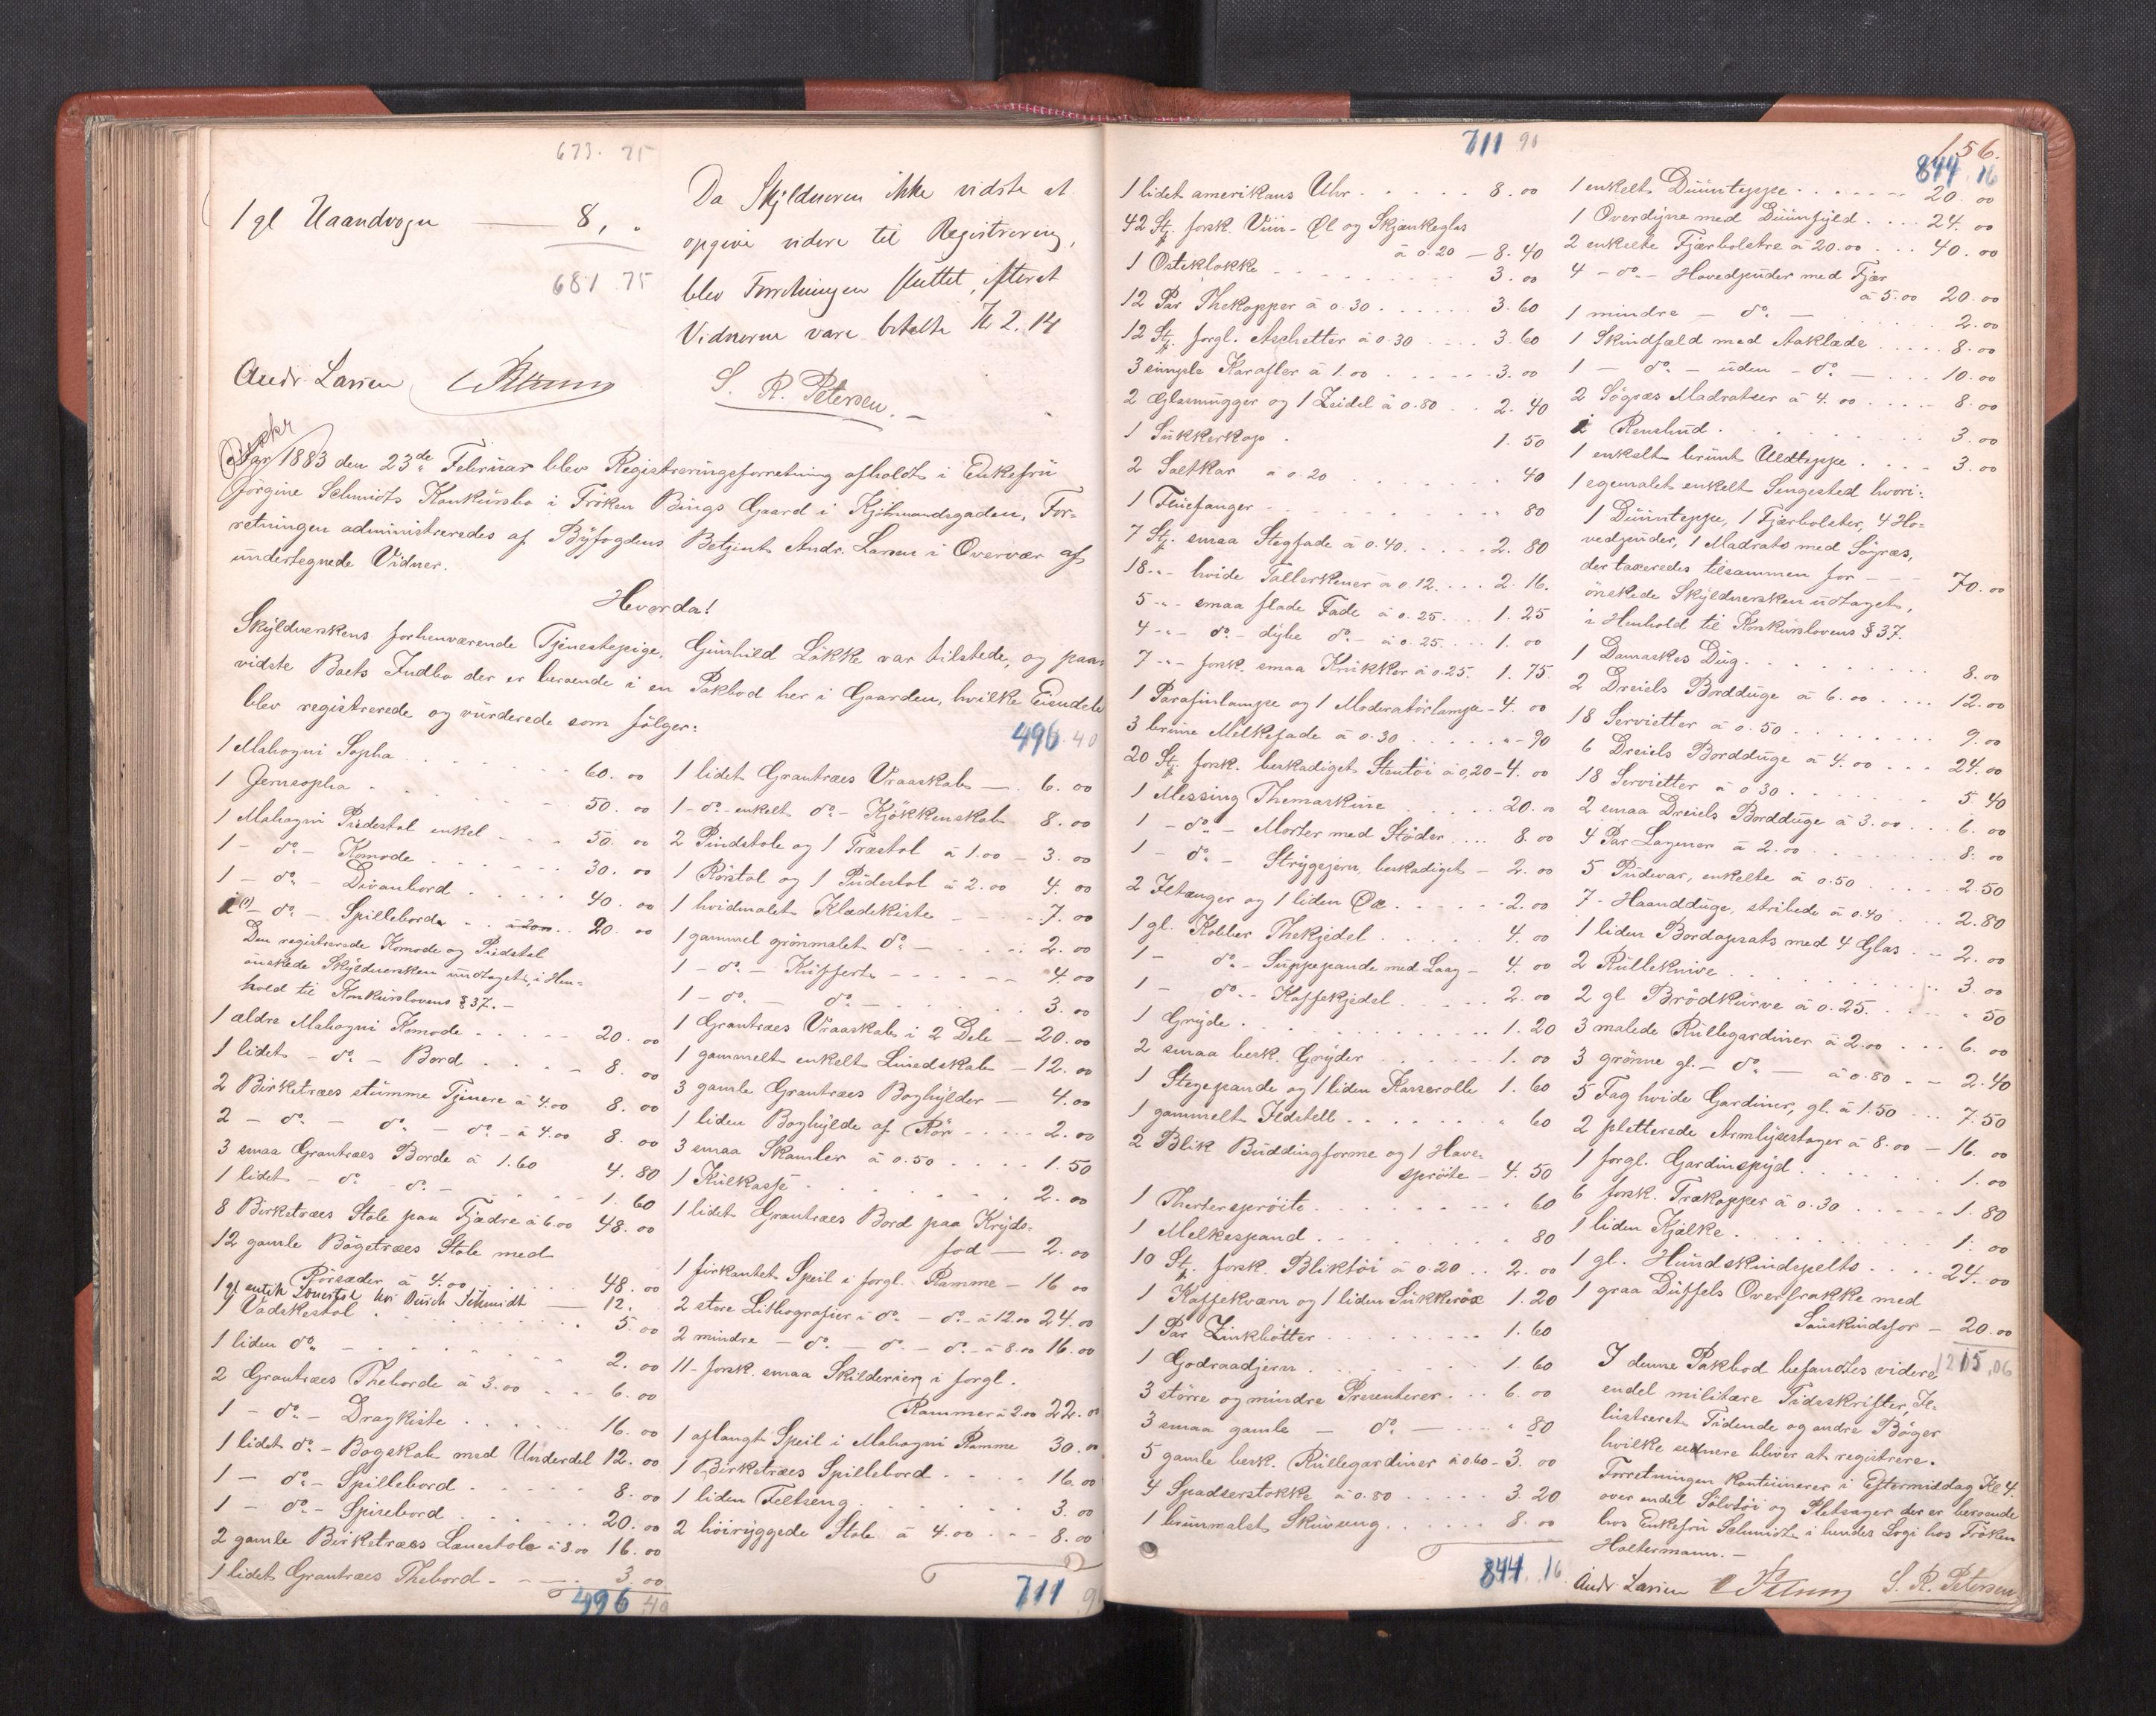 673. 75
1 gl Haandvogn — 8, „
681 75
Da Skyldneren ikke vidste at
opgive videre til Registrering,
blev Forretningen sluttet, efterat
Vidnerne vare betalte Kr 2.14
Andr. Larsen
S. R. Petersen. –
Aar 1883 den 23de Februar blev Registreringsforretning afholdt i Enkefru
Jörgine Schmidts Konkursbo i Fröken Bings Gaard i Kjöbmandsgaden, For=
retningen administreredes af Byfogdens Betjent Andr. Larsen i Overvær af
undertegnede Vidner.
Hvorda!
Skyldnerskens forhenværende Tjenestepige, Gunhild Lökke var tilstede, og paa=
vidste Boets Indbo der er beroende i en Pakbod her i Gaarden, hvilke Eiendele
blev registrerede og vurderede som fölger:
1 Mahogni Sopha . . . 60. 00
1 Jernsopha . . . 50. 00
1 Mahogni Piedestal enkel - - 50. 00
1 - do - Komode . . . 30. 00
1 - do - Divanbord . . . 40. 00
1 (1) - do - Spilleborde . . à 20.00 . . 20. 00
Den registrerede Komode og Piedestal
önskede Skyldnersken undtaget, i Hen=
hold til Konkurslovens § 37. –
1 ældre Mahogni Komode . . . 20. 00
1 lidet - do - Bord . . . 8. 00
2 Birketræes stumme Tjenere à 4.00 8. 00
2 - do - do - do - à 4.00 8. 00
3 smaa Grantræes Borde à 1.60 4. 80
1 lidet - do - do - . . . 1. 60
8 Birketræes Stole paa Fjædre à 6.00 48. 00
12 gamle Bögetræes Stole med
Rörsæder à 4.00 . . . 48. 00
1 gl antik Lænestol hos Schmidt — 12.
1 Vadskestol . . . 5. 00
1 liden do - . . . 2. 00
2 Grantræes Theborde à 3.00 . . . 6. 00
1 - do - Dragkiste . . . 16. 00
1 lidet do - Bogskab med Underdel 12. 00
1 - do - Spillebord . . . 8. 00
1 - do - Spisebord . . . 20. 00
2 gamle Birketræes Lænestole à 8.00 16. 00
1 lidet Grantræes Thebord - - - 3. 00
496 .40
496. 40
1 lidet Grantræes Vraaskab — . 6. 00
1 - do - enkelt do - Kjökkenskab 8. 00
2 Pindstole og 1 Træstol à 1.00 – 3. 00
1 Rörstol og 1 Pudestol à 2.00 4. 00
1 hvidmalet Klædekiste - - - 7. 00
1 gammel grönmalet do - . . . 2. 00
1 - do - Kuffert - - - 4. 00
1 - do - do - . . . 3. 00
1 Grantræes Vraaskab i 2 Dele – 20. 00
1 gammelt enkelt Linedskab – 12. 00
3 gamle Grantræes Boghylder – 4. 00
1 liden Boghylde af Rör - - - 2. 00
3 smaa Skamler à 0.50 . . . 1. 50
1 Kulkasse . . . 2. 00
1 lidet Grantræes Bord paa Kryds=
fod — 2. 00
1 firkantet Speil i forgl. Ramme – 16 00
2 store Lithografier i do - do - à 12.00 24. 00
2 mindre - do - do - do - à 8.00 16. 00
11 - forsk. smaa Skilderier i forgl.
Rammer à 2.00 22. 00
1 aflangt Speil i Mahogni Ramme 30. 00
1 Birketræes Spillebord . . . 16. 00
1 liden Feltseng . . . 3. 00
2 höiryggede Stole à 4.00 - - - 8. 00
711 .9
711 90
1 lidet amerikans Uhr . . . 8. 00
42 Stj. forsk. Viin- Öl og Skjænkeglas
à 0.20 – 8. 40
1 Osteklokke - - - 3. 00
12 Par Thekopper à 0.30 . . . 3. 60
12 Stj. forgl. Aschetter à 0.30 . . . 3. 60
3 simple Karafler à 1.00 . . . 3. 00
2 Glasmugger og 1 Zeidel à 0.80 . . 2. 40
1 Sukkerkop . . . 1. 50
2 Saltkar à 0.20 . . . 40
1 Fluefanger . . . 80
7 Stj. smaa Stegfade à 0.40. . . . 2. 80
18 - „ - hvide Tallerkener à 0.12. . . . 2. 16.
5 - „ - smaa flade Fade à 0.25. . . . 1. 25
4 - „ - do - dybe do - à 0.25. . . . 1. 00
7 - „ - forsk. smaa Krukker à 0.25. 1. 75.
1 Parafinlampe og 1 Moderatörlampe – 4. 00
3 brune Melkefade à 0.30 . . . „ - 90
20 Stj. forsk. beskadiget Stentöi à 0,20 – 4. 00
1 Messing Themaskine . . . 20. 00
1 - do - Morter med Stöder . . . 8. 00
1 - do - Strygejern, beskadiget – 2. 00
2 Ildtænger og 1 liden Öxe . . . 2. 00
1 gl. Kobber Thekjedel . . . 4. 00
1 - do - Suppepande med Laag – 4. 00
1 - do - Kaffekjedel . . . 2. 00
1 Gryde . . . 1. 20
2 smaa besk. Gryder . . . 1. 00
1 Stegepande og 1 liden Kasserolle 1. 60
1 gammelt Ildstell . . . „ 60
2 Blik Buddingforme og 1 Have=
spröite – 4. 50
1 Thertesspröite . . . „ 60
1 Melkespand . . . „ 80
10 Stj. forsk. Bliktöi à 0.20 . . 2. 00
1 Kaffekværn og 1 liden Sukkeröx 1. 20
1 Par Zinkbötter . . . 1. 60
1 Godraadjern . . . 1. 60
3 större og mindre Presenterer . . . 6. 00
3 smaa gamle - do - . . . „ 80
5 gamle besk. Rullegardiner à 0.60 – 3. 00
4 Spadserstokke à 0.80 . . . 3. 20
1 brunmalet Skuvseng . . . 8. 00
844. 16
156.
844 16
1 enkelt Duunteppe . . . 20. 00
1 Overdyne med Duunfyld . . . 24. 00
2 enkelte Fjærbolstre à 20.00 . . . 40. 00
4 - do - Hovedpuder med Fjær
à 5.00 20. 00
1 mindre - do - . . . 2. 00
1 Skindfæld med Aaklæde . . . 8. 00
1 - do - uden - do - . . . 10. 00
2 Sögræs Madratser à 4.00 . . . 8. 00
1 Renshud . . . 3. 00
1 enkelt brunt Uldteppe . . . 3. 00
1 egemalet enkelt Sengested hvori:
1 Duunteppe, 1 Fjærbolster, 4 Ho=
vedpuder, 1 Madrats med Sögræs,
der taxeredes tilsammen for - - - 70. 00
önskede Skyldnersken udtaget,
i Henhold til Konkurslovens § 37.
1 Damaskes Dug . . . 8. 00
2 Dreiels Bordduge à 6.00 . . . 12. 00
18 Servietter à 0.50 . . . 9. 00
6 Dreiels Bordduge à 4.00 . . . 24. 00
18 Servietter à 0 30 . . . 5. 40
2 smaa Dreiels Bordduge à 3.00 . . . 6. 00
4 Par Lagener à 2.00 . . . 8. 00
5 Pudevar, enkelte à 0.50 . . . 2. 50
7 - Haandduge, stribede à 0.40 . . . 2. 80
1 liden Bordopsats med 4 Glas . . – 2. 00
2 Rulleknive . . . 3. 00
2 gl Brödkurve à 0.25. . . . „ 50
3 malede Rullegardiner à 2.00 . . . 6. 00
3 grönne gl. - do - à 0.80 . – 2. 40
5 Fag hvide Gardiner, gl. à 1.50 . . . 7. 50
2 pletterede Armlysestager à 8.00 – 16. 00
1 forgl. Gardinspyd . . . 1. 00
6 forsk. Trækopper à 0.30 . . . 1. 80
1 liden Kjælke . . . 1. 00
1 gl. Hundskindspelts . . . 24. 00
1 graa Duffels Overfrakke med
Sauskindsfor – 20. 00
1215,06
I denne Pakbod befandtes videre
endel militære Tidsskrifter, Il=
lustreret Tidende og andre Böger
hvilke senere bliver at registrere.
Forretningen kontinuerer i Eftermiddag Kl 4.
over endel Sölvtöi og Pletsager der er beroende
hos Enkefru Schmidt i hendes Logi hos Fröken
Holtermann. –
Andr Larsen
S. R. Petersen